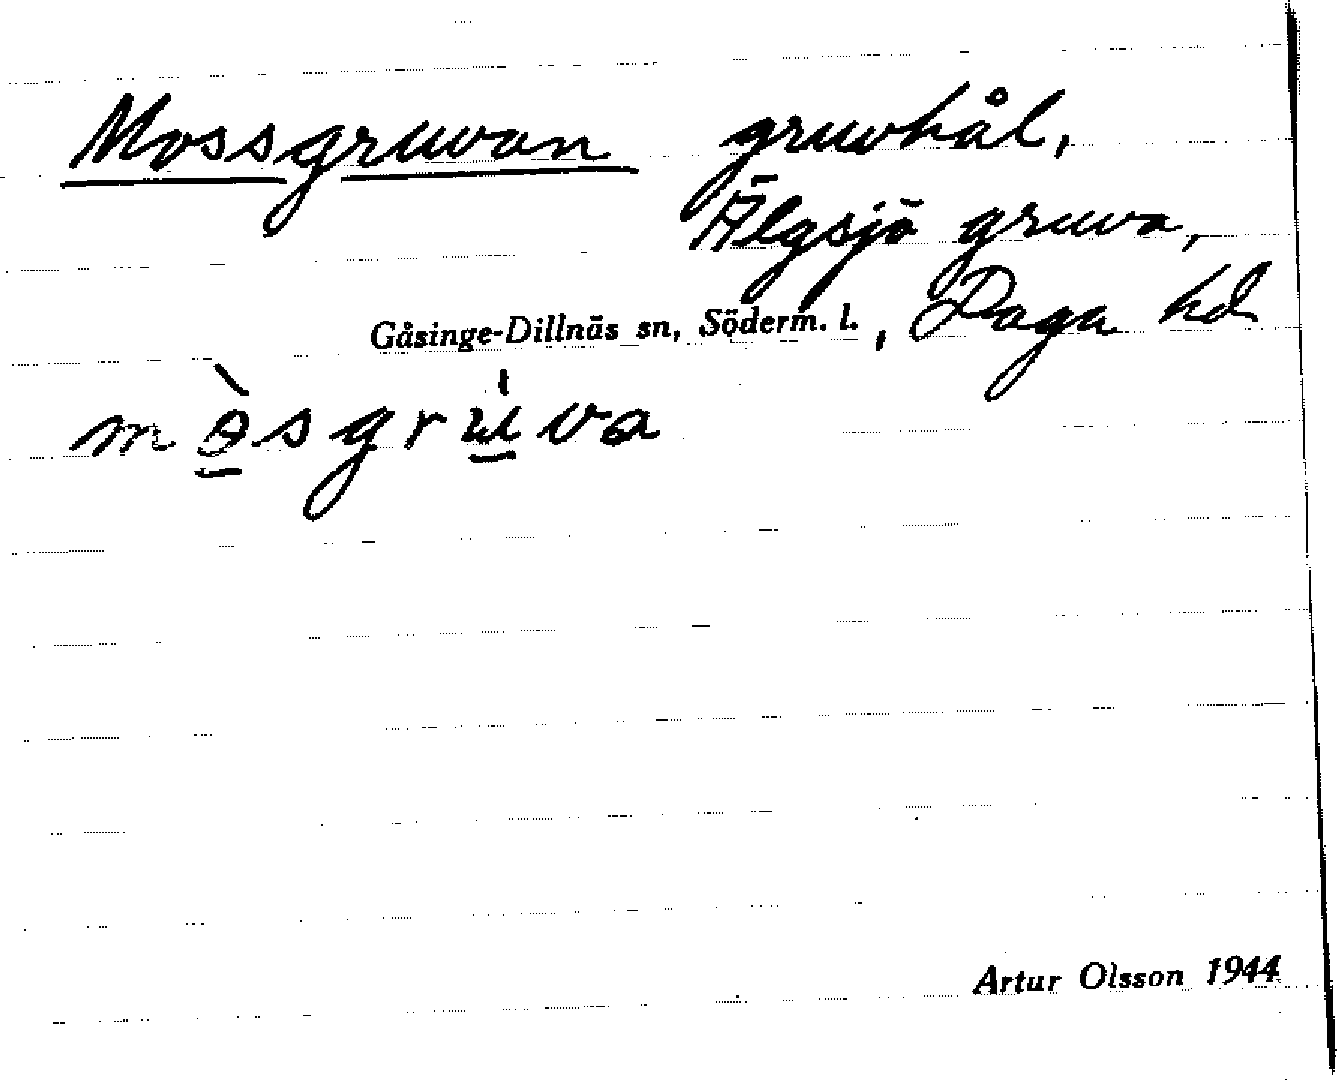 Mossgruvan gruvhål,
Älgsjö gruva,
Gåsinge-Dillnäs sn, Söderm. l., Daga hd
mə̱̀sgrṳ̍va
Artur Olsson 1944